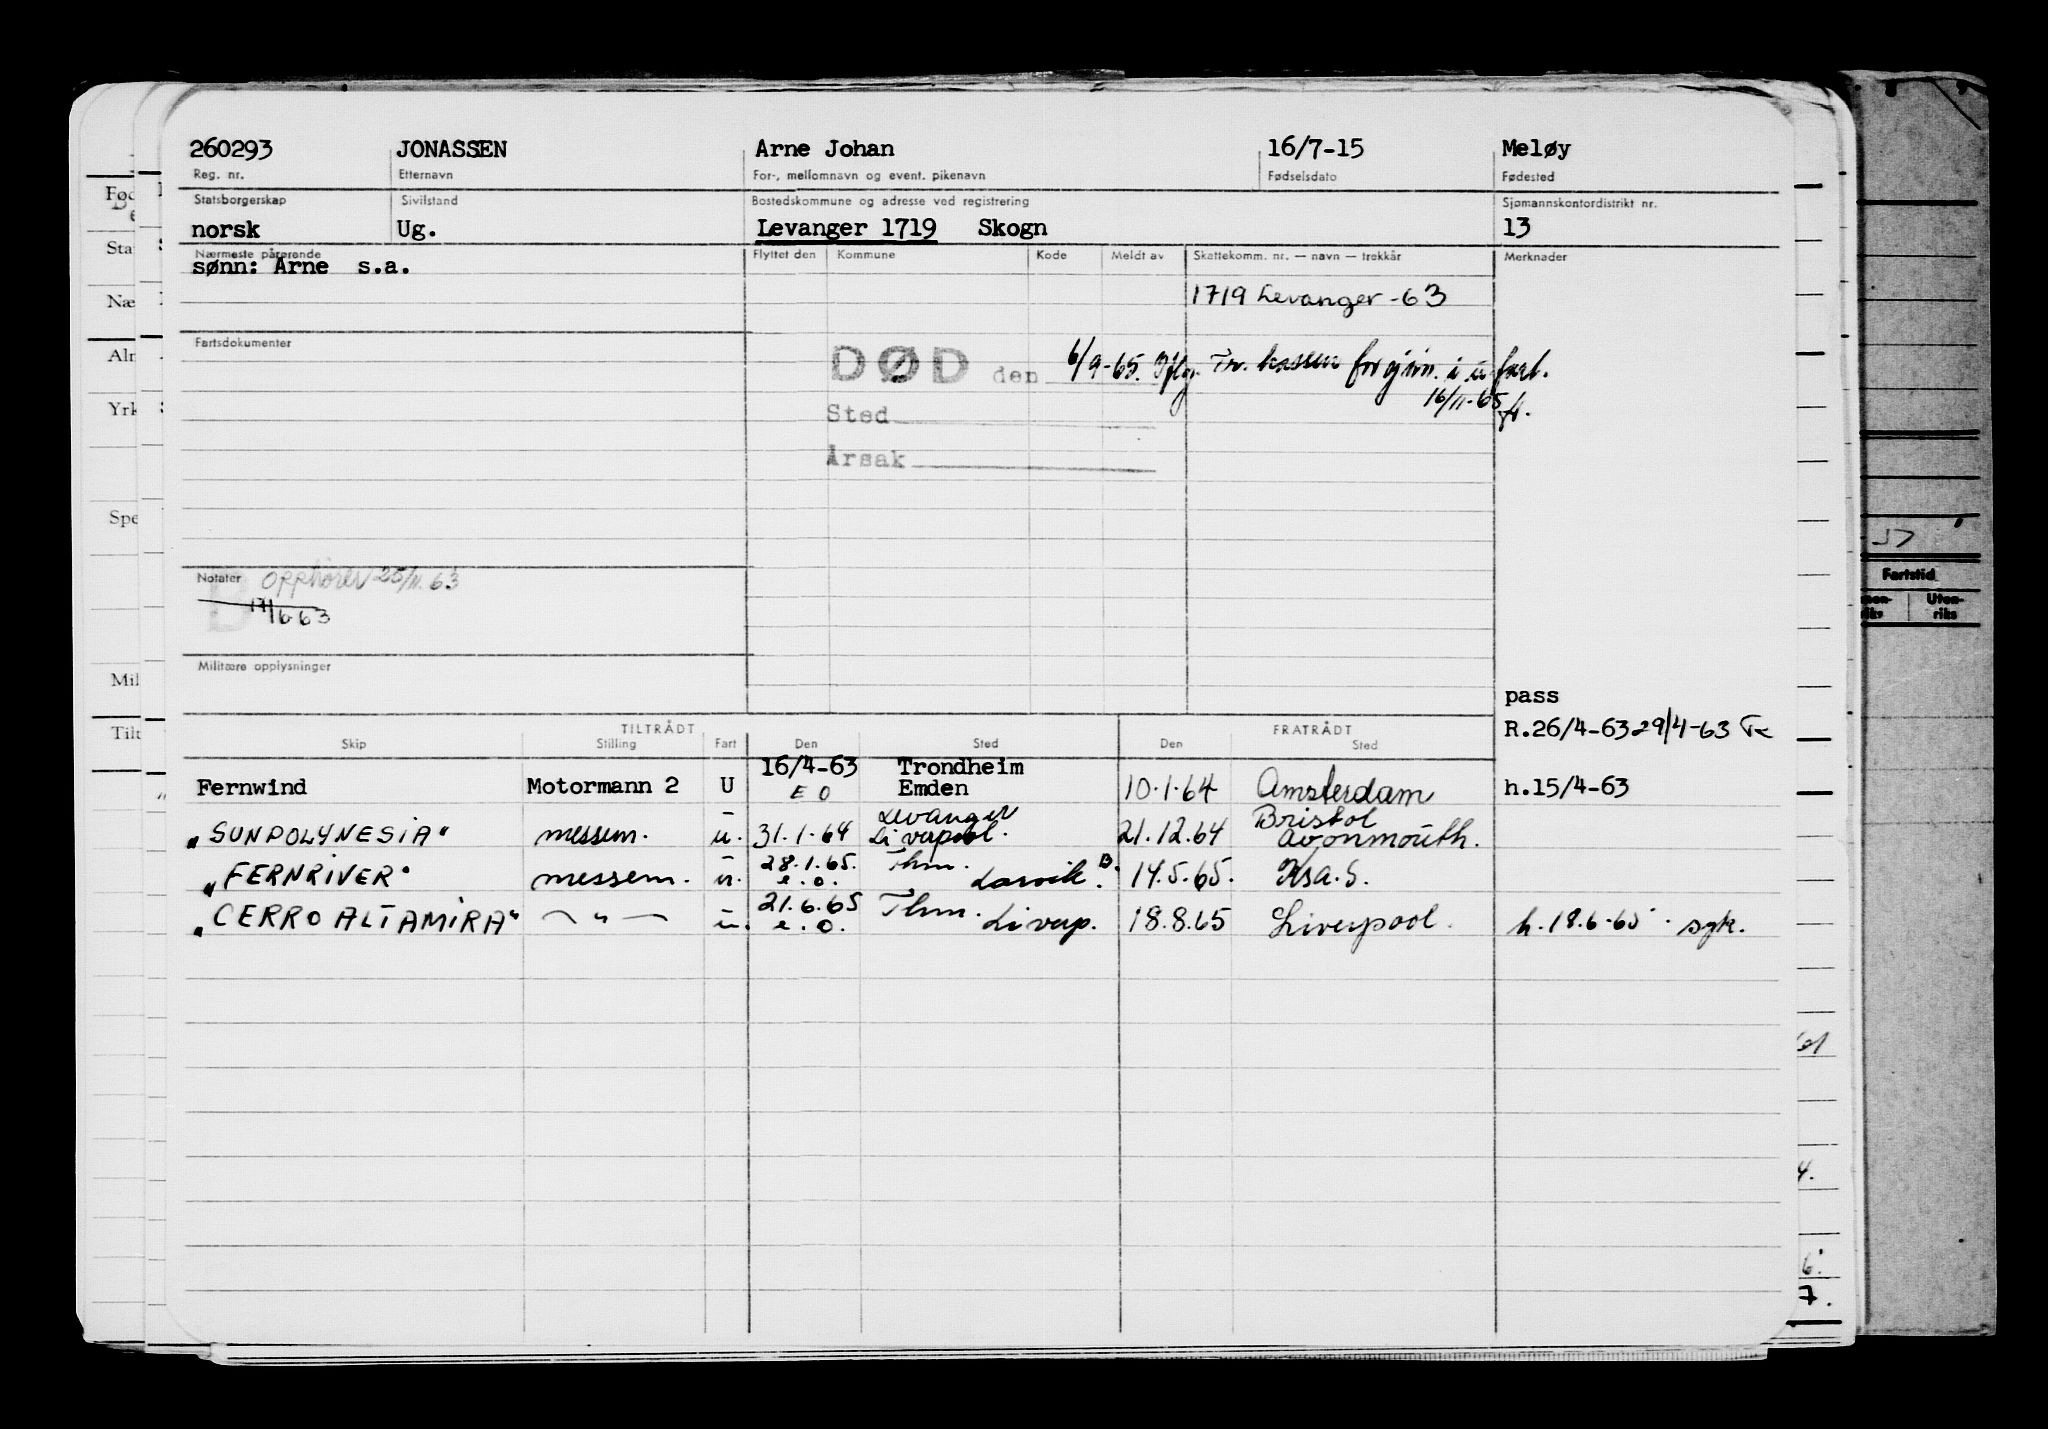 260293 JONASSEN Arne Johan 16/7-15 Meløy
Reg. nr. Etternavn For-, mellomnavn og event. pikenavn Fødselsdato Fødested
Statsborgerskap Sivilstand Bostedskommune og adresse ved registrering Sjømannskontordistrikt nr.
norsk Ug. Levanger 1719 Skogn 13
Nærmeste pårørende Flyttet den Kommune Kode Meldt av Skattekomm. nr. — navn — trekkår Merknader
sønn: Arne s.a.
1719 Levanger -63
Fartsdokumenter
DØD den 6/9-65. Tr. kassen i u-fart.
16/11-65
Sted
Årsak
Notater Opphører 25/11. 63
17/6 63
Militære opplysninger
pass
R.26/4-63 29/4-63
TILTRÅDT FRATRÅDT
Skip Stilling Fart Den Sted Den Sted
16/4-63 Trondheim
Fernwind Motormann 2 U E O Emden 10.1.64 Amsterdam h.15/4-63
Levanger Bristol
"SUNPOLYNESIA" messem. u. 31.1.64 Liverpool. 21.12.64 Avonmouth.
28.1.65. Thm.
"FERNRIVER" messem. u. e.o. Larvik B. 14.5.65. Ksa.S.
21.6.65 Thm.
"CERRO ALTAMIRA" — " — u. e.o. Liverp. 18.8.65 Liverpool. h.18.6-65. syk.
Fød
Sta
Næ
Alm
Yrk
Spe
Mil
Tilt
Fartstid
Uten-
riks
7.